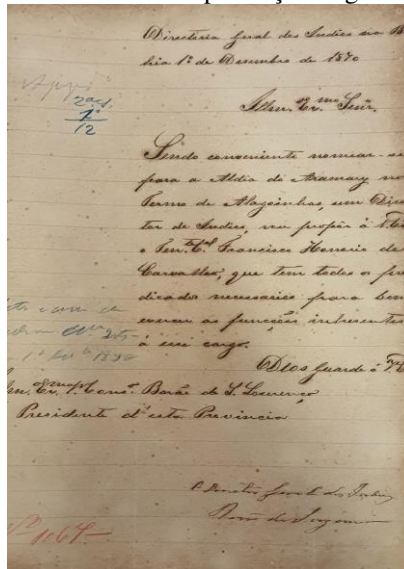 Directoria Geral dos Indios na B
hia 1º de Dezembro de 1870
Illm. Ex.mo Senr.
1º
12
Sendo conveniente nomear-se
para a Aldia de Aramary no
Termo de Alagoinhas, um Direc
tor de Indios, vou propôr á V. Ex
o Ten. Cel Francisco Honorio de
Carvalho, que tem todos os pre
dicados necessarios para bem
exercer as funcções inherentes
á esse cargo.
1870
Deos Guarde á V. E
Ex.mo Cons.o Barão de S. Lourenço
Presidente d'esta Provincia
O Director Geral dos Indios
Barão de